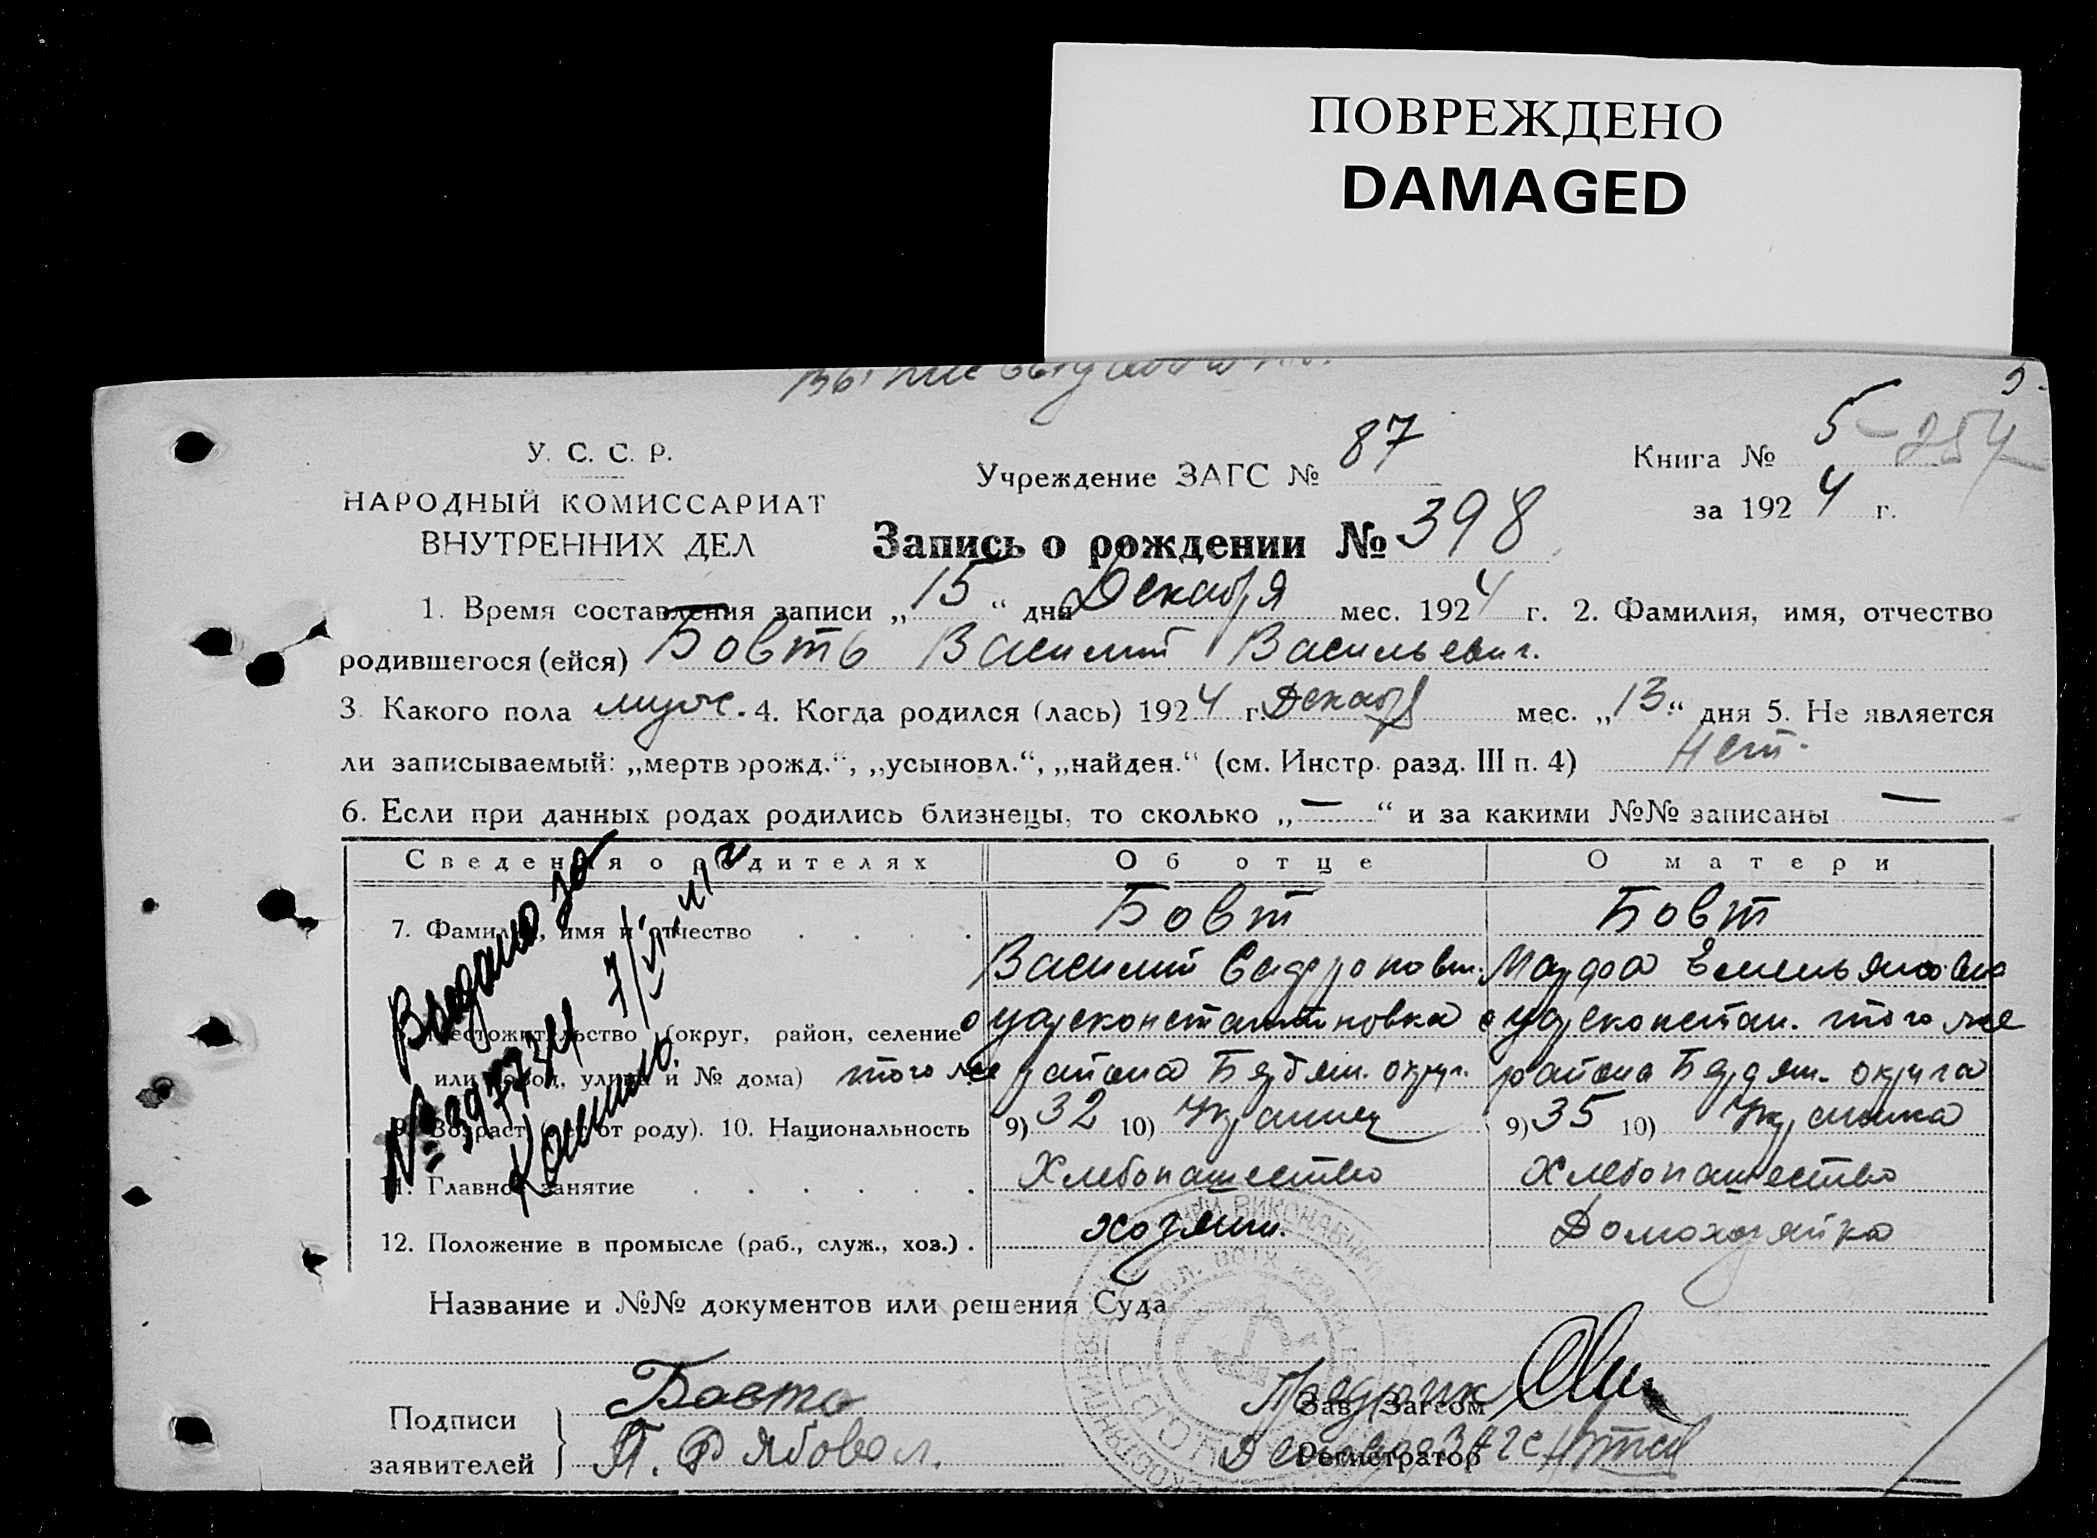 ПОВРЕЖДЕНО
DAMAGED
У. С. С. Р.
НАРОДНЫЙ КОМИССАРИАТ
ВНУТРЕННИХ ДЕЛ
Учреждение ЗАГС № 87
Книга № 5
за 1924 г.
Запись о рождении № 398
1. Время составления записи „15“ дня Декабря мес. 1924 г. 2. Фамилия, имя, отчество
родившегося (ейся) Бовть Василий Васильевич.
3. Какого пола муж. 4. Когда родился (лась) 1924 г. Декабр мес. „13“ дня 5. Не является
ли записываемый: „мертворожд.“, „усыновл.“, „найден.“ (см. Инстр. разд. III п. 4) Нет.
6. Если при данных родах родились близнецы, то сколько „—“ и за какими №№ записаны —
Сведения о родителях Об отце О матери
7. Фамилия, имя и отчество Бовт Бовт
Василий Марфа Емельяновна
8. Местожительство (округ, район, селение
или город, улица и № дома) того же района Бердян. округ. района Бердян. округа
9. Возраст (лет от роду). 10. Национальность 9) 32 10) Украинец 9) 35 10) Украинка
11. Главное занятие Хлебопашество Хлебопашество
12. Положение в промысле (раб., служ., хоз.) хозяин. Домохозяйка
Название и №№ документов или решения Суда
Подписи Бовт
заявителей П. Рябовол.
Зав. Загсом
Регистратор